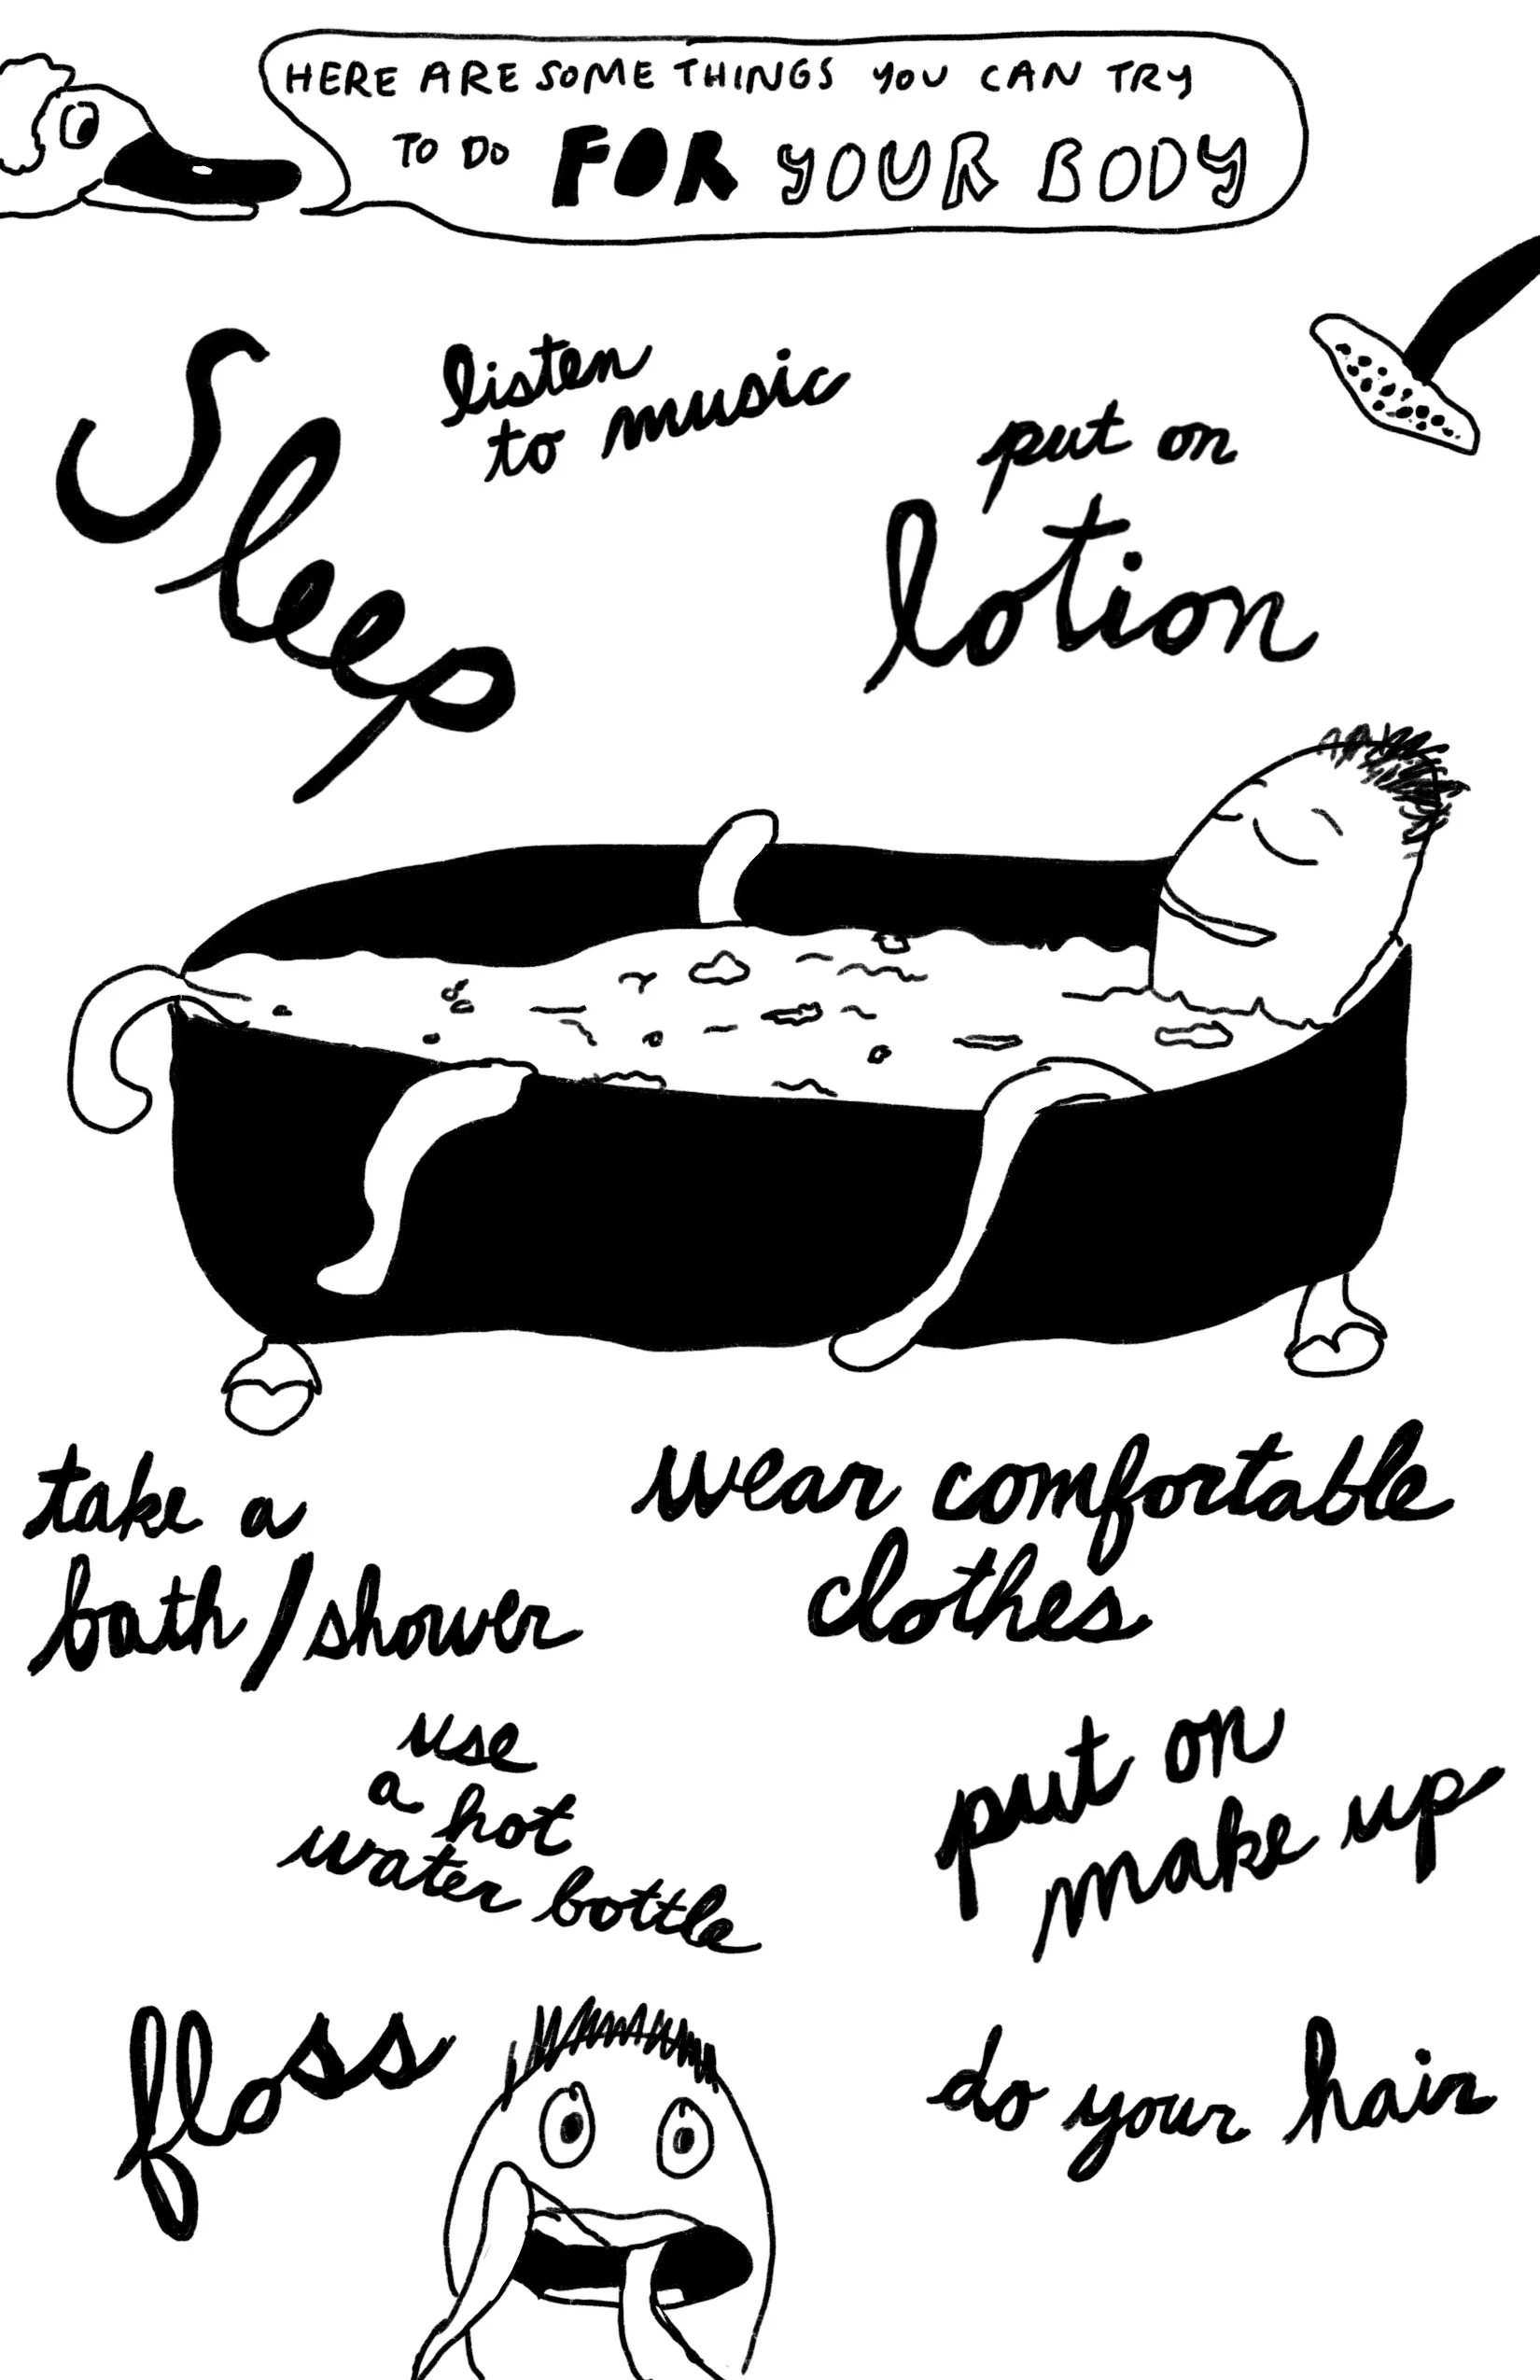 HERE ARE SOME THINGS YOU CAN TRY
TO DO FOR YOUR BODY
Sleep
listen
to music
put on
lotion
take a
bath/shower
wear comfortable
clothes
use
a hot
water bottle
put on
make up
floss
do your hair